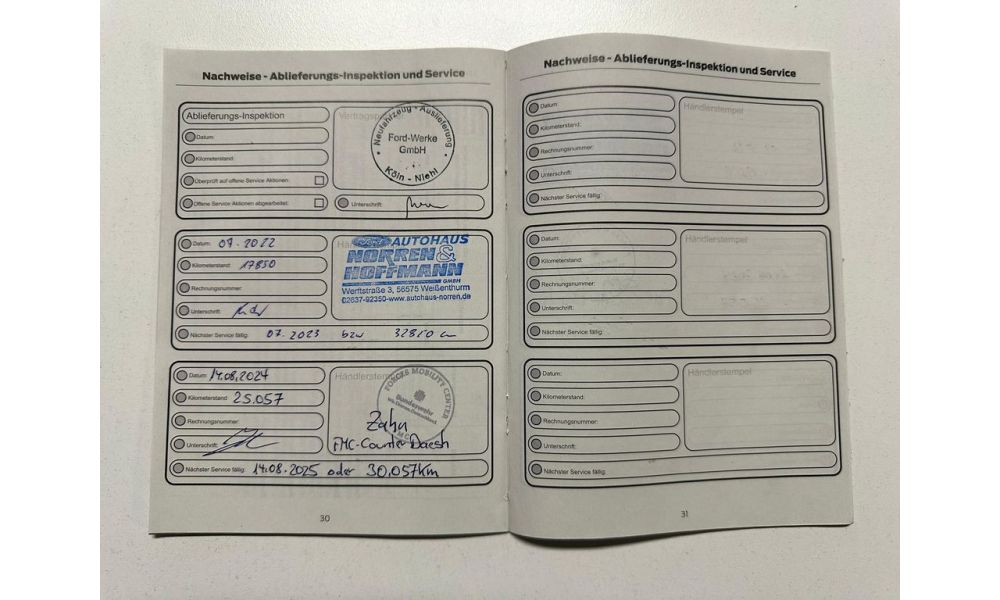 Nachweise - Ablieferungs-Inspektion und Service
Ablieferungs-Inspektion
Datum:
Kilometerstand:
Überprüft auf offene Service Aktionen:
Offene Service Aktionen abgearbeitet:
Neufahrzeug - Auslieferung
Ford-Werke
GmbH
Köln - Niehl
Unterschrift:
Datum: 07.2022
Kilometerstand: 17850
Rechnungsnummer:
Unterschrift:
Ford AUTOHAUS
NORREN &
HOFFMANN
GMBH
Werftstraße 3, 56575 Weißenthurm
02637-92350-www.autohaus-norren.de
Nächster Service fällig: 07.2023 bzw 32850 km
Datum: 14.08.2024
Kilometerstand: 25.057
Rechnungsnummer:
Unterschrift:
Händlerstempel
FORCES MOBILITY CENTER
Bundeswehr
Zahn
FMC-Counter Daesh
Nächster Service fällig: 14.08.2025 oder 30.057km
30
Nachweise - Ablieferungs-Inspektion und Service
Datum:
Kilometerstand:
Rechnungsnummer:
Unterschrift:
Händlerstempel
Nächster Service fällig:
Datum:
Kilometerstand:
Rechnungsnummer:
Unterschrift:
Händlerstempel
Nächster Service fällig:
Datum:
Kilometerstand:
Rechnungsnummer:
Unterschrift:
Händlerstempel
Nächster Service fällig:
31